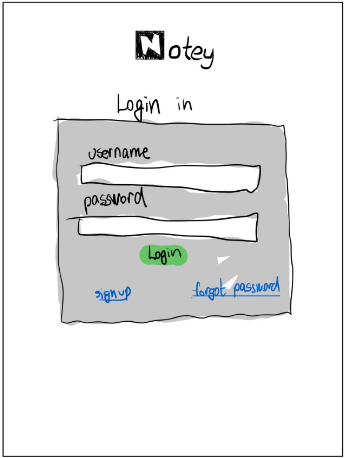 Notey
Login in
username
password
Login
sign up forgot password